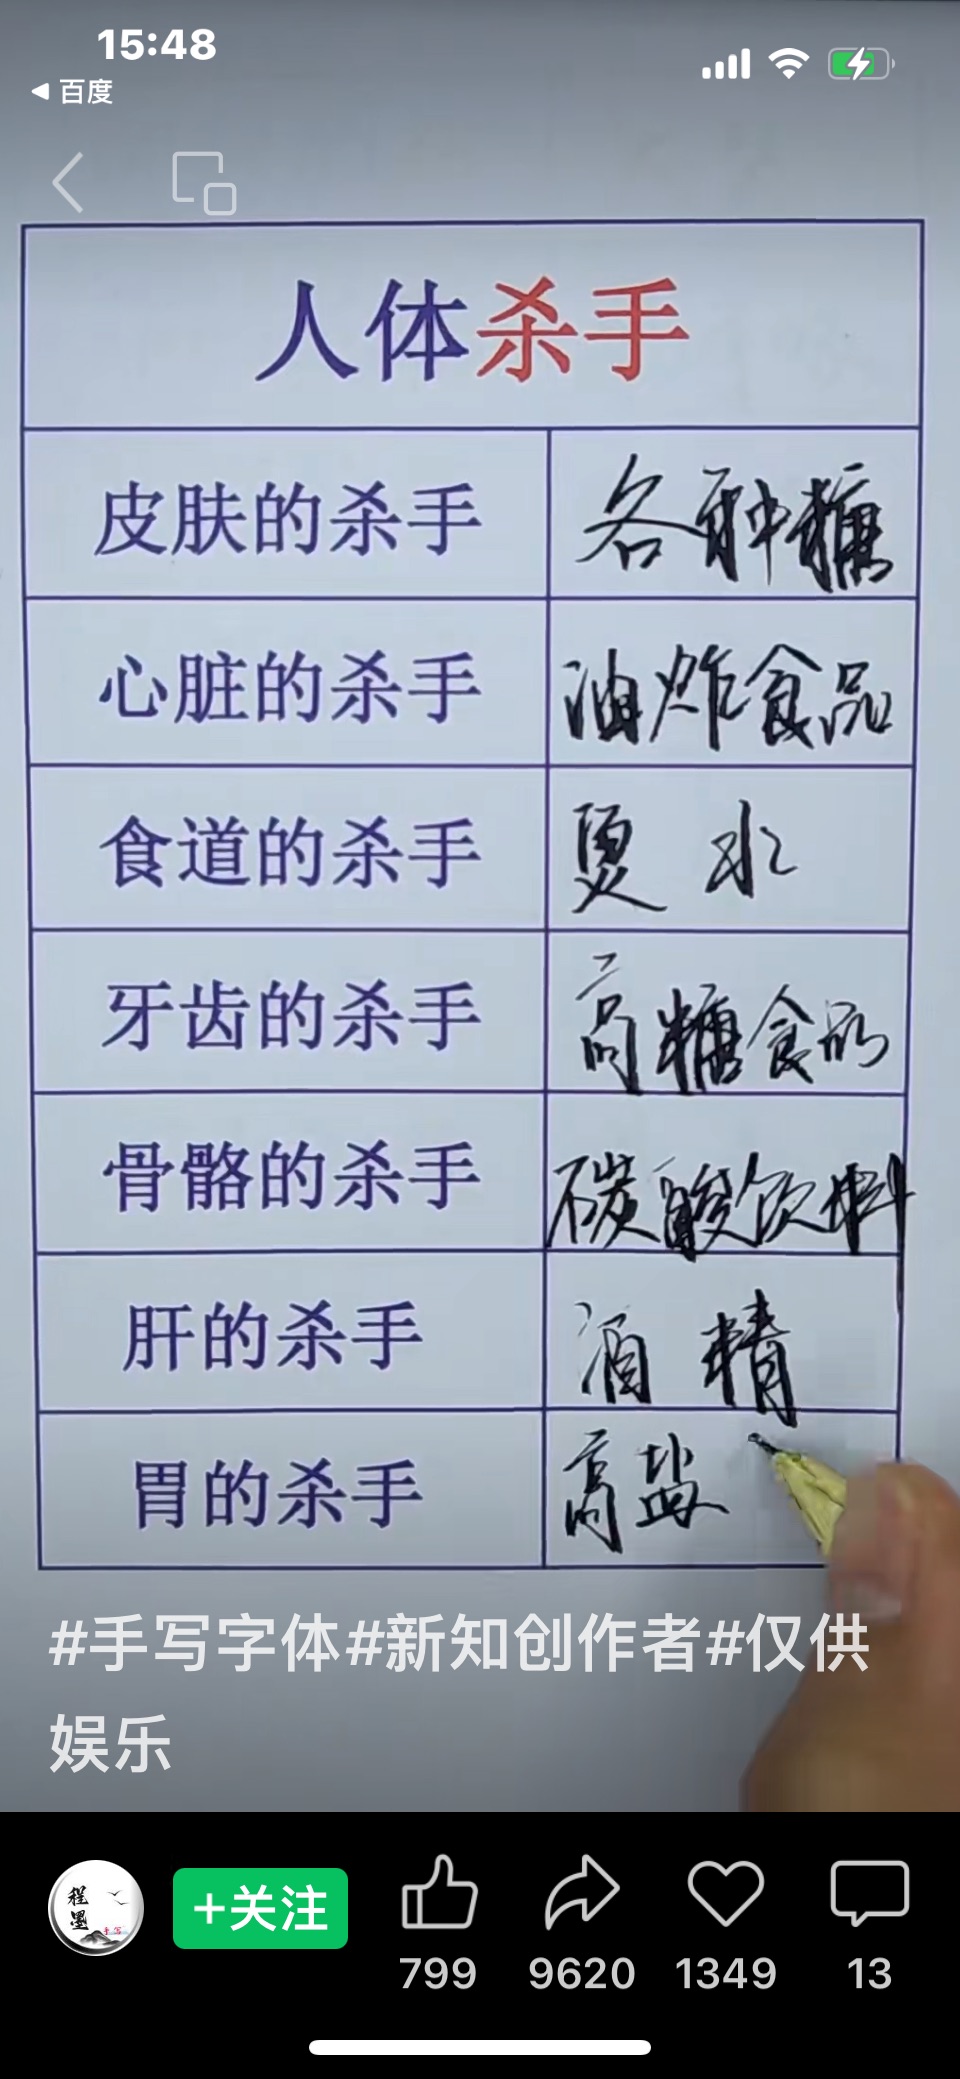 15:48
百度
人体杀手
皮肤的杀手 各种糖
心脏的杀手 油炸食品
食道的杀手 烫水
牙齿的杀手 高糖食品
骨骼的杀手 碳酸饮料
肝的杀手 酒精
胃的杀手 高盐
#手写字体#新知创作者#仅供
娱乐
程墨
手写
+关注
799 9620 1349 13